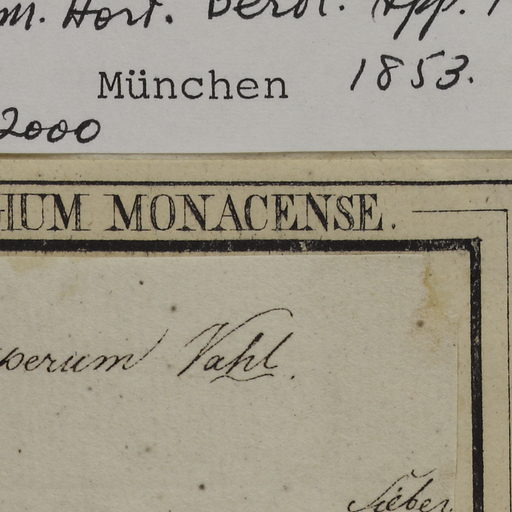 m. Hort. Berol. App. 1
München 1853.
2000
GIUM MONACENSE.
perum Vahl.
Sieber